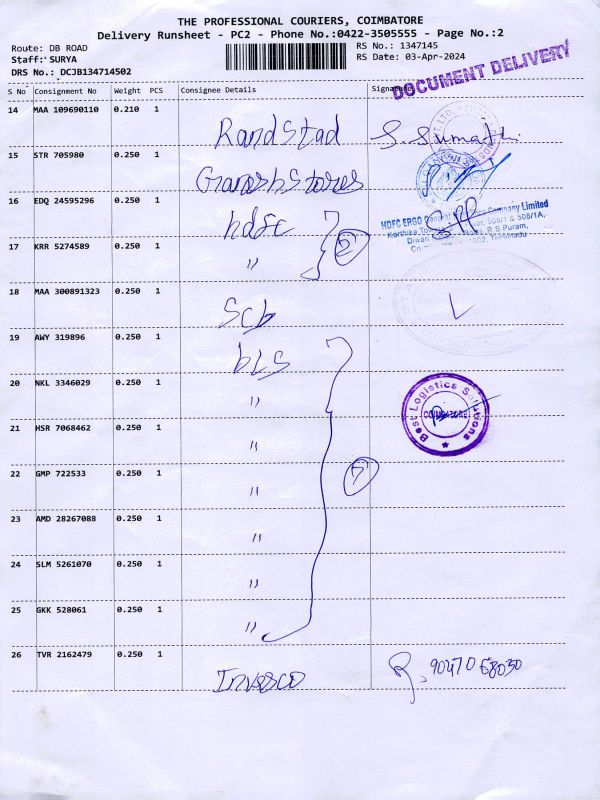 THE PROFESSIONAL COURIERS, COIMBATORE
Delivery Runsheet - PC2 - Phone No.:0422-3505555 - Page No.:2
Route: DB ROAD
RS No.: 1347145
Staff: SURYA
RS Date: 03-Apr-2024
DRS No.: DCJB134714502
DOCUMENT DELIVERY
S No Consignment No Weight PCS Consignee Details Signature
14 MAA 109690110 0.210 1 Randstad S. Sumathi
15 STR 705980 0.250 1 Ganesh Stores
16 EDQ 24595296 0.250 1 hdfc
HDFC ERGO General Insurance Company Limited
17 KRR 5274589 0.250 1 "
2
18 MAA 300891323 0.250 1 Scb
19 AWY 319896 0.250 1 bLS
20 NKL 3346029 0.250 1 "
Best Logistics Solutions
COIMBATORE
21 HSR 7068462 0.250 1 "
22 GMP 722533 0.250 1 "
7
23 AMD 28267088 0.250 1 "
24 SLM 5261070 0.250 1 "
25 GKK 528061 0.250 1 "
26 TVR 2162479 0.250 1 Invesco R. 90470 68030